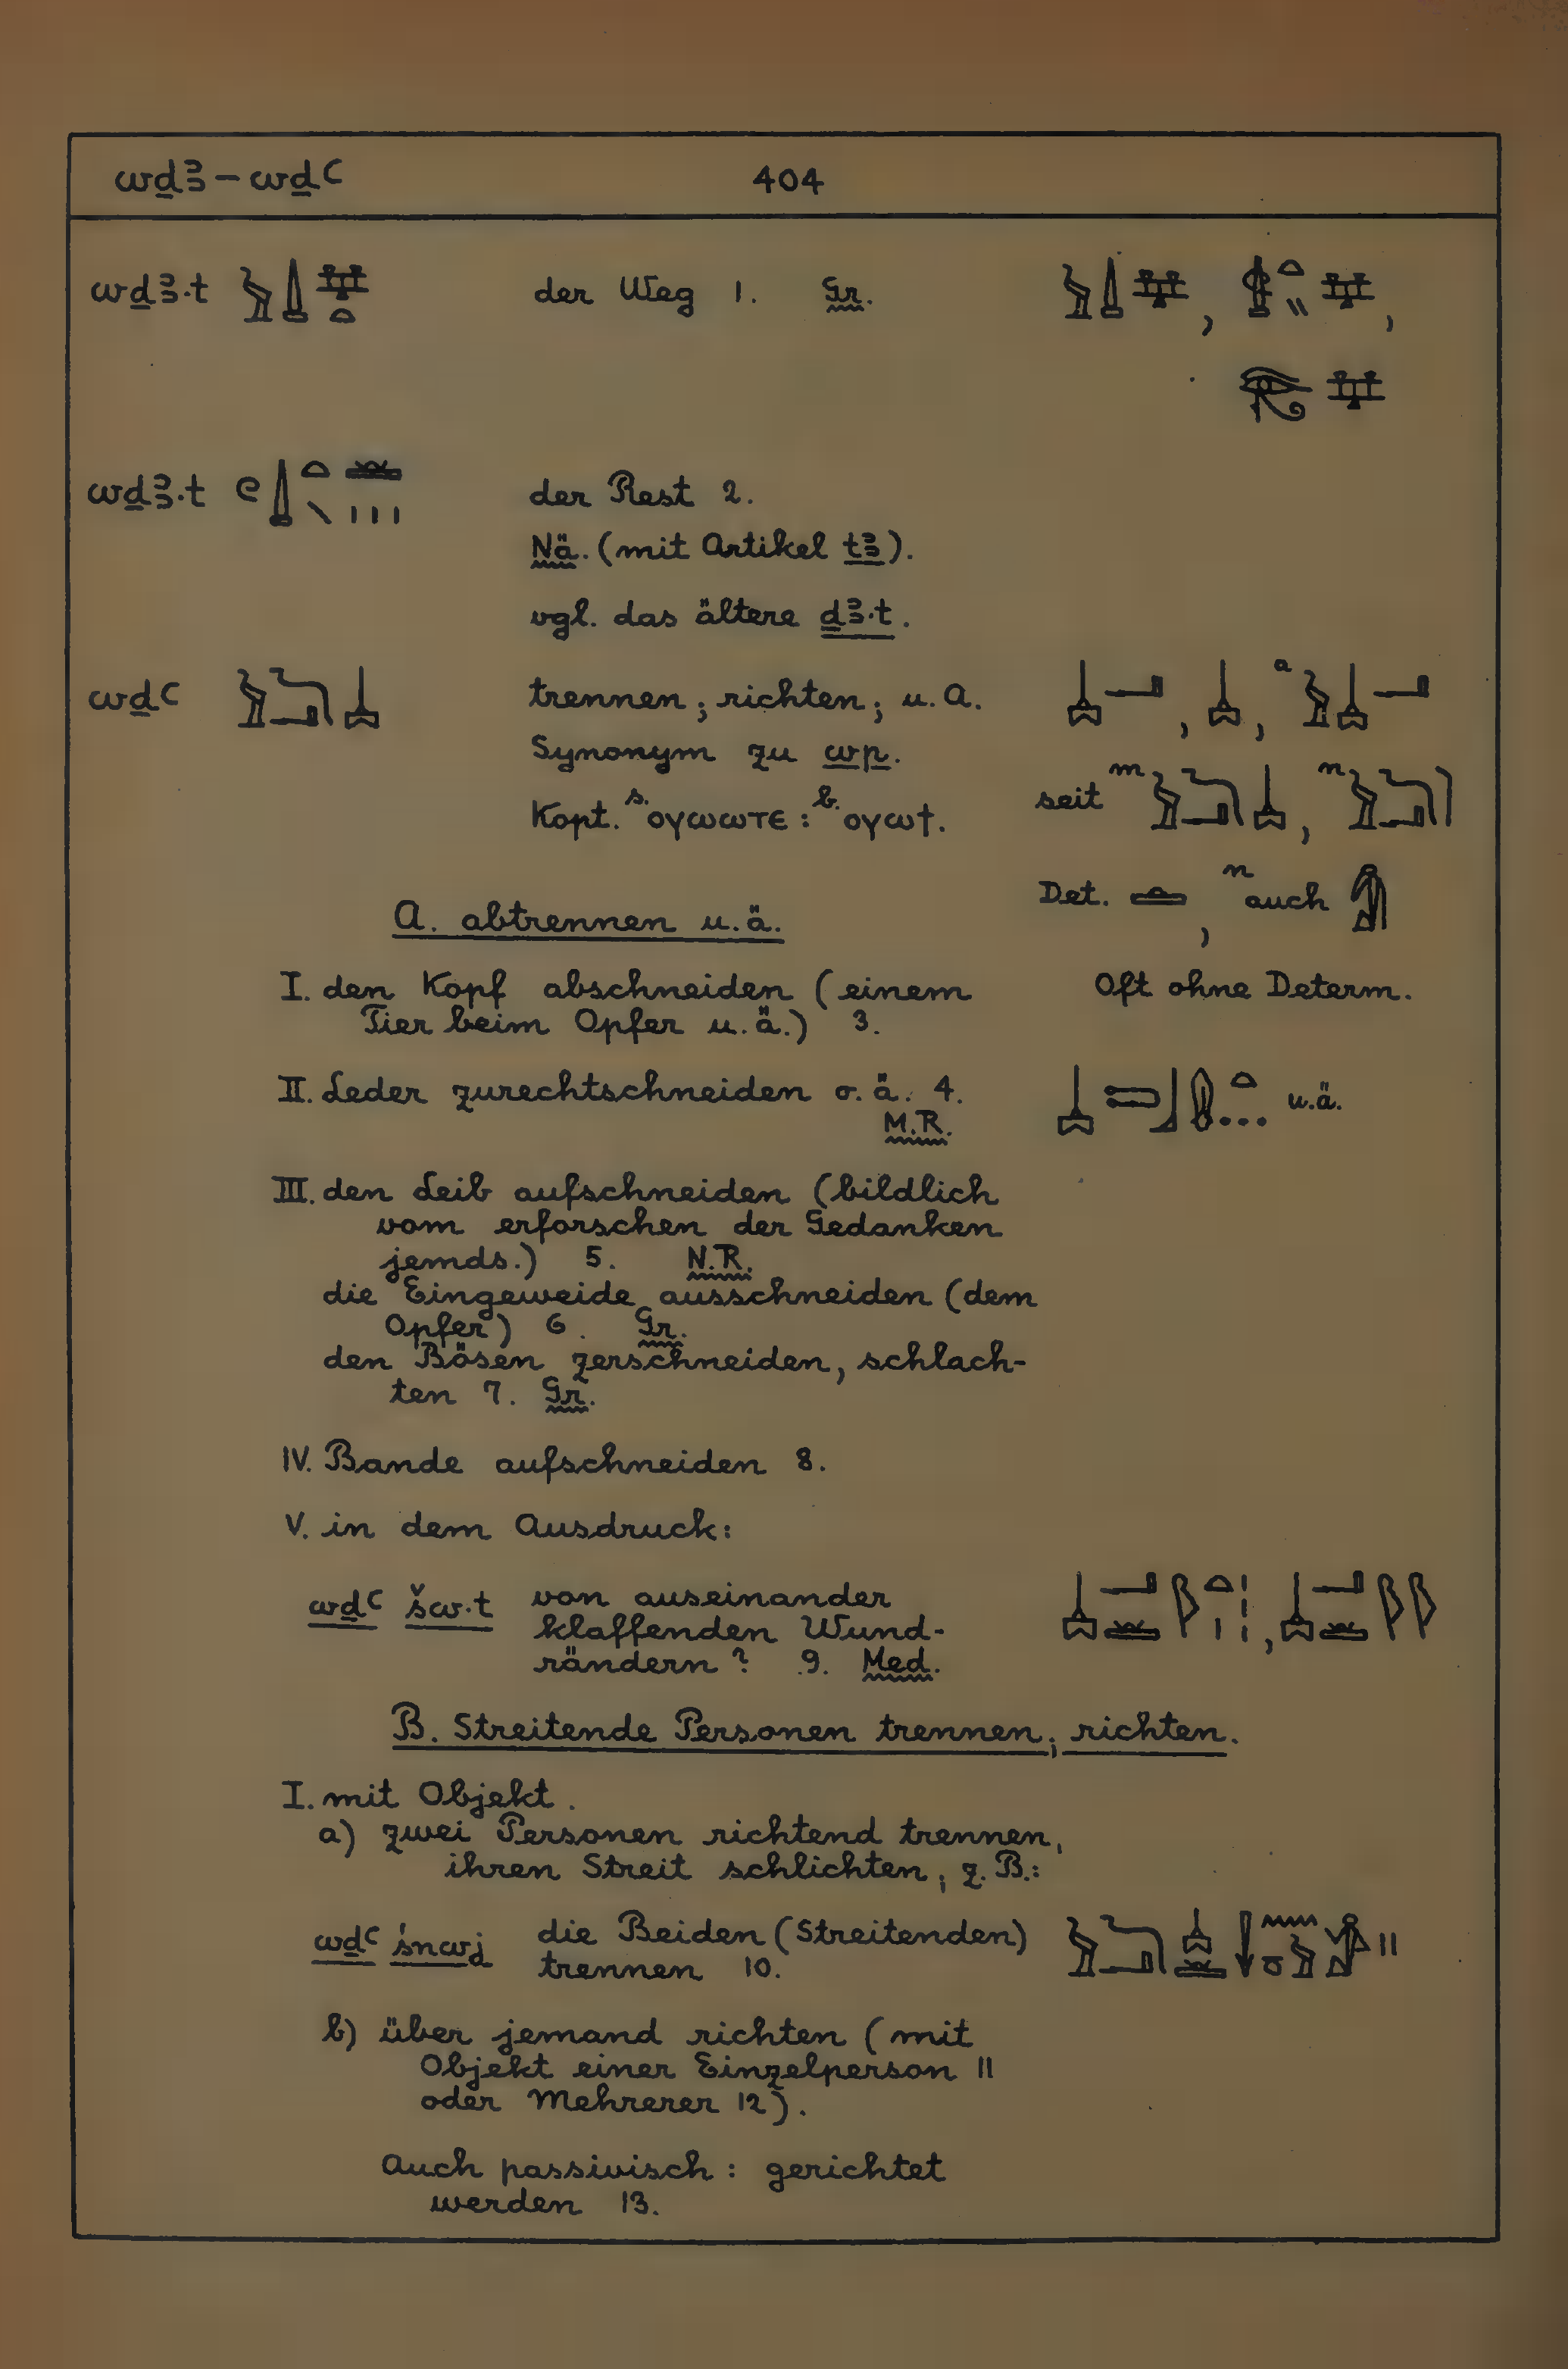 wḏꜣ – wḏꜥ 404
wḏꜣ.t der Weg 1. Gr. , ,
wḏꜣ.t der Rest 2.
Nä. (mit Artikel tꜣ).
vgl. das ältere ḏꜣ.t.
wḏꜥ trennen; richten; u. A. , , a
Synonym zu wp.
seit m , n
Kopt. s. ⲟⲩⲱⲱⲧⲉ : b. ⲟⲩⲱϯ.
Det. , n auch
A. abtrennen u. ä.
I. den Kopf abschneiden (einem Oft ohne Determ.
Tier beim Opfer u. ä.) 3.
II. Leder zurechtschneiden o. ä. 4. u. ä.
M.R.
III. den Leib aufschneiden (bildlich
vom erforschen der Gedanken
jemds.) 5. N.R.
die Eingeweide ausschneiden (dem
Opfer) 6. Gr.
den Bösen zerschneiden, schlach-
ten 7. Gr.
IV. Bande aufschneiden 8.
V. in dem Ausdruck:
wḏꜥ šw.t von auseinander
klaffenden Wund-
rändern? 9. Med.
B. Streitende Personen trennen; richten.
I. mit Objekt.
a) zwei Personen richtend trennen,
ihren Streit schlichten; z. B.:
wḏꜥ śnwj die Beiden (Streitenden)
trennen 10.
b) über jemand richten (mit
Objekt einer Einzelperson 11
oder Mehrerer 12).
Auch passivisch: gerichtet
werden 13.